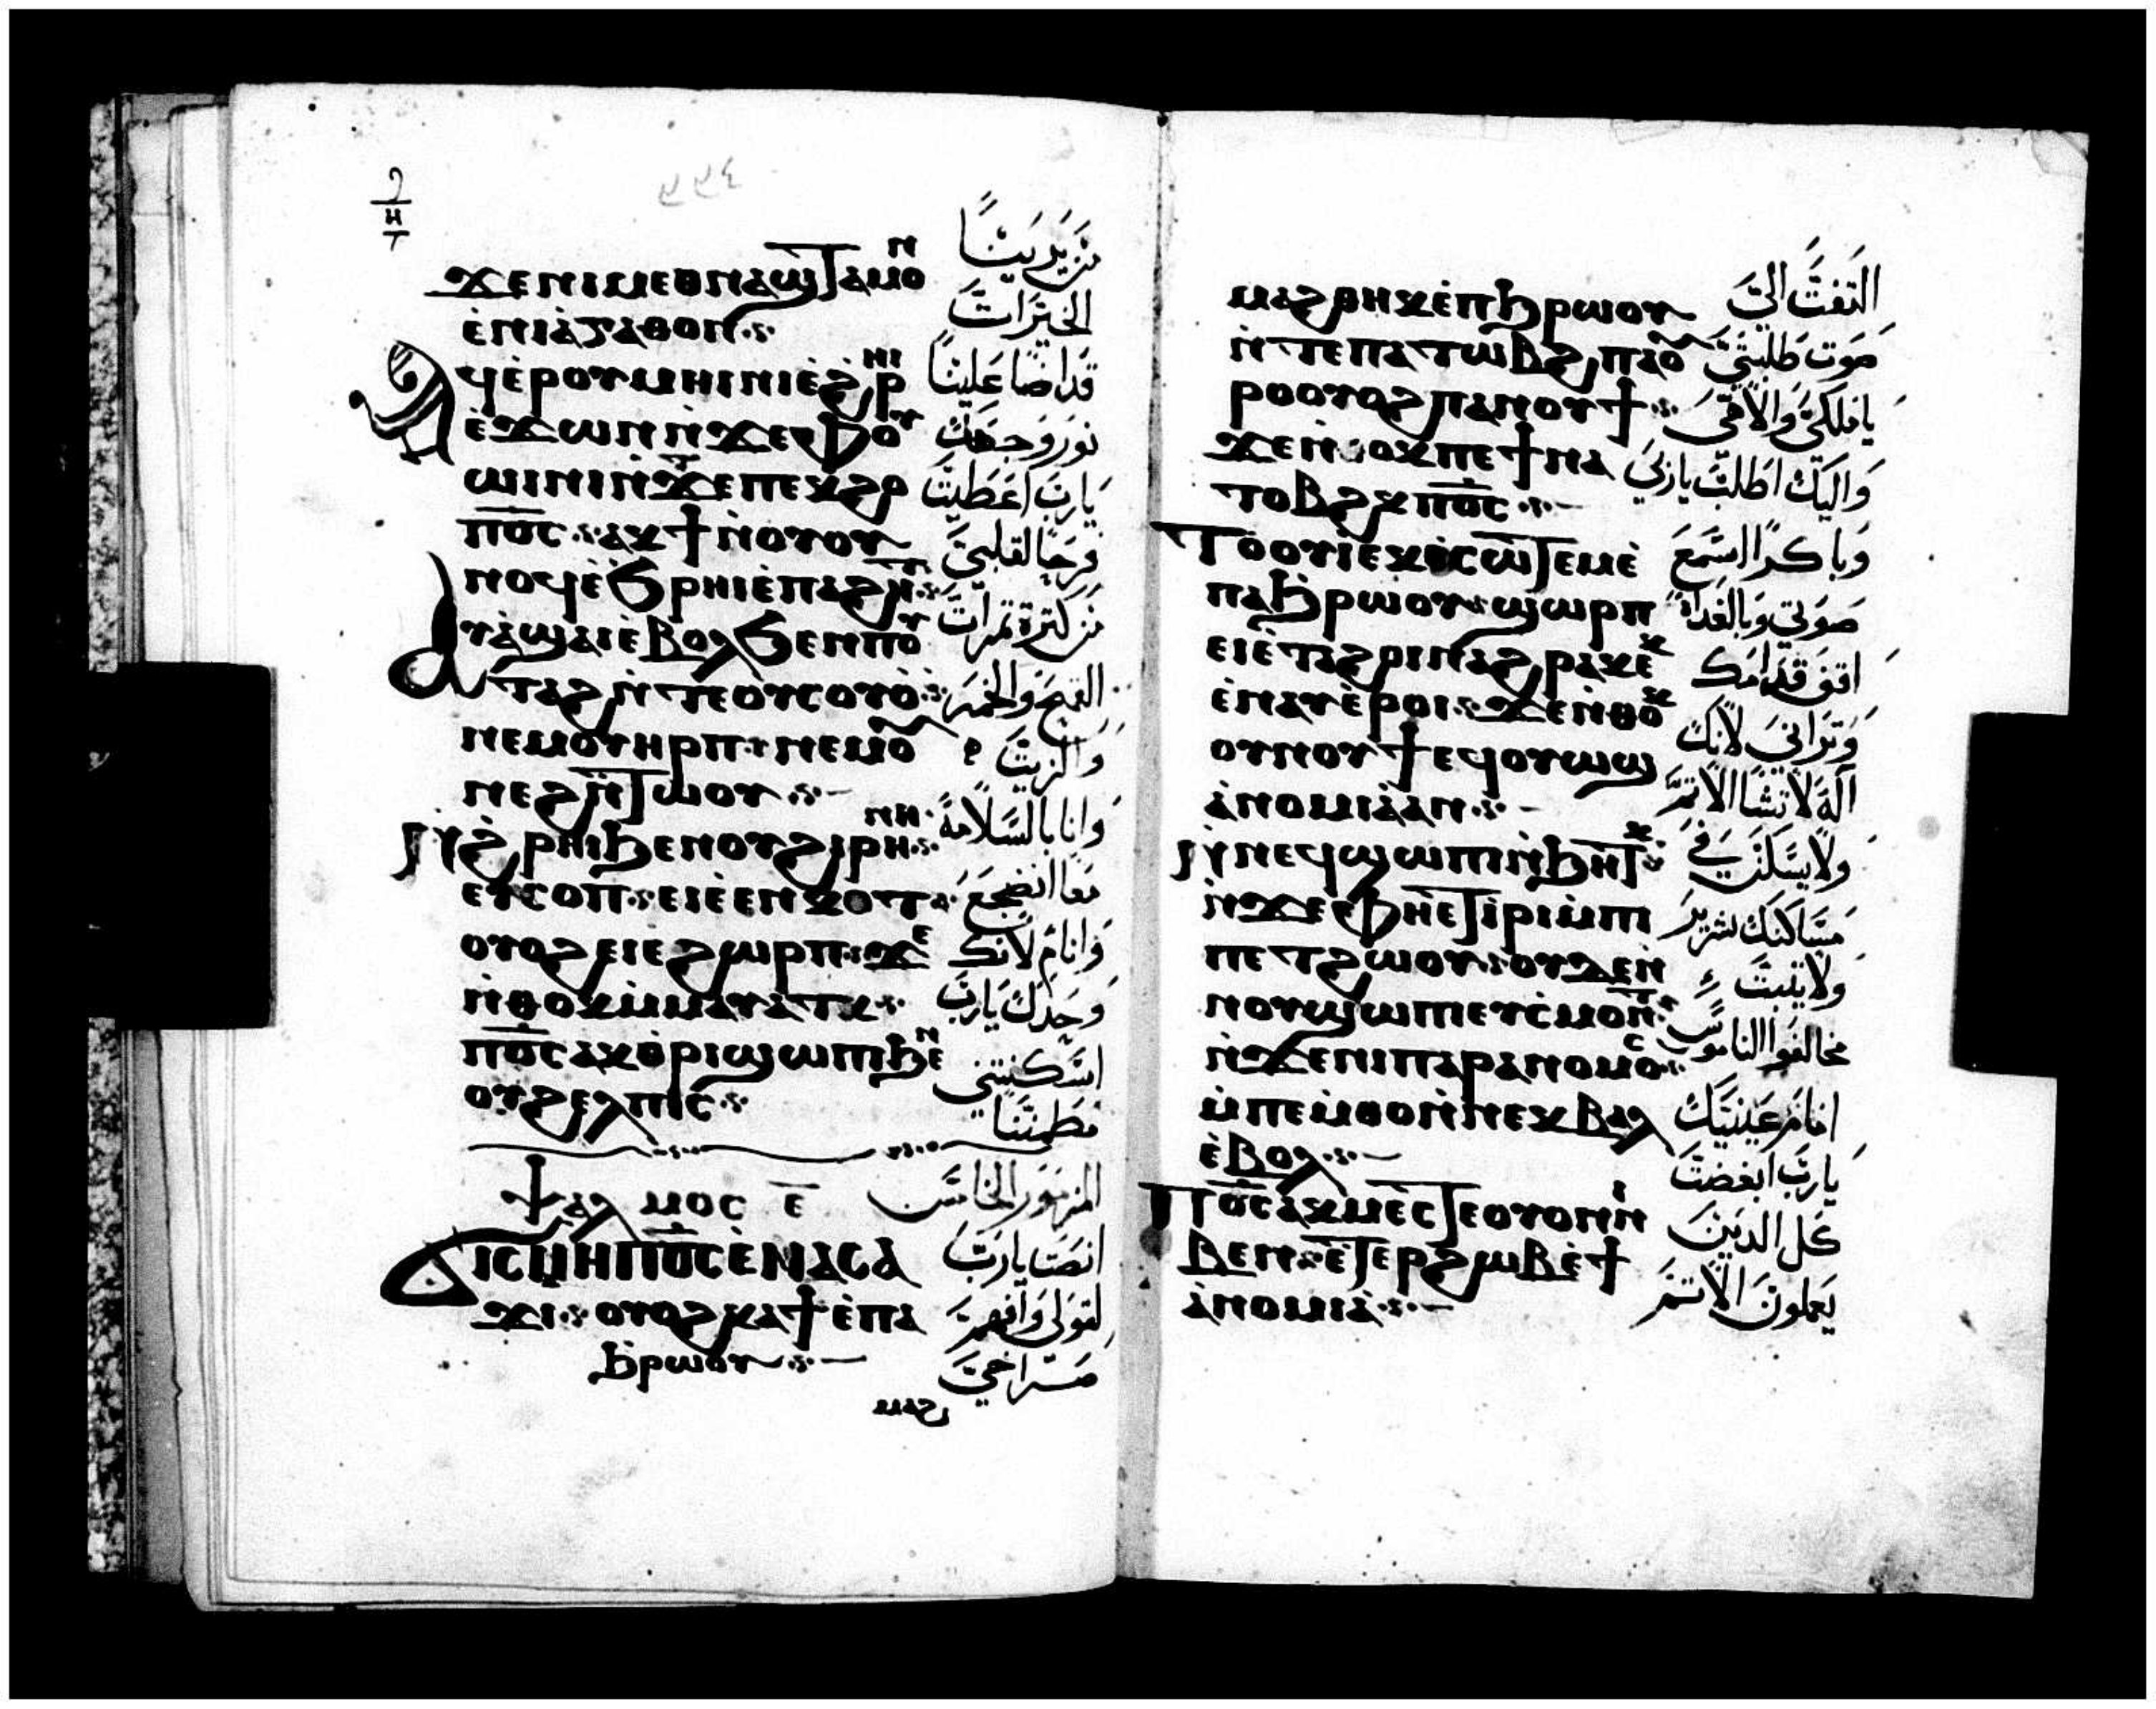 ϫⲉⲛⲓⲙⲉⲑⲛⲁϣⲧⲁⲙⲟⲛ
ⲉ̀ⲛⲓⲁ̀ⲅⲁⲑⲟⲛ
ϥⲉ̀ⲣⲟⲩⲙⲏⲓⲛⲓⲉ̀ϩⲣⲏⲓ
ⲉ̀ϫⲱⲛⲛ̀ϫⲉⲫⲟⲩ
ⲱⲓⲛⲓⲛ̀ⲧⲉⲡⲉⲕϩⲟ
ⲡⲟ̅ⲥ̅ ⲁⲕϯⲛ̀ⲟⲩⲟⲩ
ⲛⲟϥⲉ̀ϧⲣⲏⲓⲉ̀ⲡⲁϩⲏⲧ
ⲁⲩⲁ̀ϣⲁⲓⲉ̀ⲃⲟⲗϧⲉⲛⲡⲟⲩ
ⲧⲁϩⲛ̀ⲧⲉⲟⲩⲥⲟⲩⲟ̀
ⲛⲉⲙⲟⲩⲏⲣⲡ ⲛⲉⲙⲟ
ⲛⲉϩⲛ̀ⲧⲱⲟⲩ
ⲛ̀ϩⲣⲏⲓϧⲉⲛⲟⲩϩⲓⲣⲏⲛⲏ
ⲉⲩⲥⲟⲡ ⲉⲓⲉ̀ⲉⲛⲕⲟⲧ
ⲟⲩⲟϩⲉⲓⲉϩⲱⲣⲡ ϫⲉ
ⲛ̀ⲑⲟⲕⲙ̀ⲙⲁⲩⲁⲧⲕ
ⲡⲟ̅ⲥ̅ⲁⲕⲑⲣⲓϣⲱⲡⲓϧⲉⲛ
ⲟⲩϩⲉⲗⲡⲓⲥ
ⲯⲁⲗⲙⲟⲥ ⲉ̅
ϭⲓⲥⲙⲏⲡⲟ̅ⲥ̅ⲉ̀ⲛⲁⲥⲁ
ϫⲓ ⲟⲩⲟϩⲕⲁϯⲉ̀ⲡⲁ
ϧⲣⲱⲟⲩ
ⲙⲁϩ
الخيرات
قد اضا علينا
نور وجهك
يارب اعطيت
فرحًا لقلبي
من كثرة ثمرات
القمح والخمر
والزيت
وانا بالسلامة
معا انضجع
وانام لانك
وحدك يارب
اسكنتني
المزمور الخامس
انصت يارب
لقولي وافهم
صراخي
ⲙⲁϩⲑⲏⲕⲉ̀ⲡϧⲣⲱⲟⲩ
ⲛ̀ⲧⲉⲡⲁⲧⲱⲃϩ ⲡⲁⲟ
ⲣⲟⲟⲩⲟϩⲡⲁⲛⲟⲩϯ
ϫⲉⲛ̀ⲑⲟⲕⲡⲉϯⲛⲁ
ⲧⲟⲃϩⲕⲡⲟ̅ⲥ̅
ⲧⲟⲟⲩⲓⲉ̀ⲕⲉ̀ⲥⲱⲧⲉⲙⲉ̀
ⲡⲁϧⲣⲱⲟⲩ ϣⲱⲣⲡ
ⲉⲓⲉ̀ⲧⲁϩⲟⲓⲛⲁϩⲣⲁⲕⲉ̀ⲕ
ⲉ̀ⲛⲁⲩⲉ̀ⲣⲟⲓ ϫⲉⲛ̀ⲑⲟⲕ
ⲟⲩⲛⲟⲩϯⲉϥⲟⲩⲱϣ
ⲁ̀ⲛⲟⲙⲓⲁ̀ⲁⲛ
ⲛ̀ⲛⲉϥϣⲱⲡⲓⲛ̀ϧⲏⲧⲕ
ⲛ̀ϫⲉⲫⲏⲉ̀ⲧⲓⲣⲓⲙ̀ⲡⲓ
ⲡⲉⲧϩⲱⲟⲩ ⲟⲩϫⲉⲛ̀
ⲛⲟⲩϣⲱⲡⲓⲉⲩⲥⲙⲟⲛⲧ
ⲛ̀ϫⲉⲛⲓⲡⲁⲣⲁⲛⲟⲙⲟⲥ
ⲙ̀ⲡⲉⲙ̀ⲑⲟⲛ̀ⲛⲉⲕⲃⲁⲗ
ⲉ̀ⲃⲟⲗ
ⲡⲟ̅ⲥ̅ⲁⲕⲙⲉⲥⲧⲉⲟⲩⲟⲛⲛⲓ
ⲃⲉⲛ ⲉ̀ⲧⲉⲣϩⲱⲃⲉ̀ϯ
ⲁ̀ⲛⲟⲙⲓⲁ̀
التفت الي
صوت طلبتي
يا ملكي والاهي
واليك اطلب يارب
وباكرًا اسمع
صوتي وبالغداة
اقف قدامك
وتراني لانك
اله لا تشا الاثم
ولا يسكن في
مساكنك شرير
ولا يثبت
مخالفوا الناموس
امام عينيك
يارب ابغضت
كل الذين
يعملون الاثم